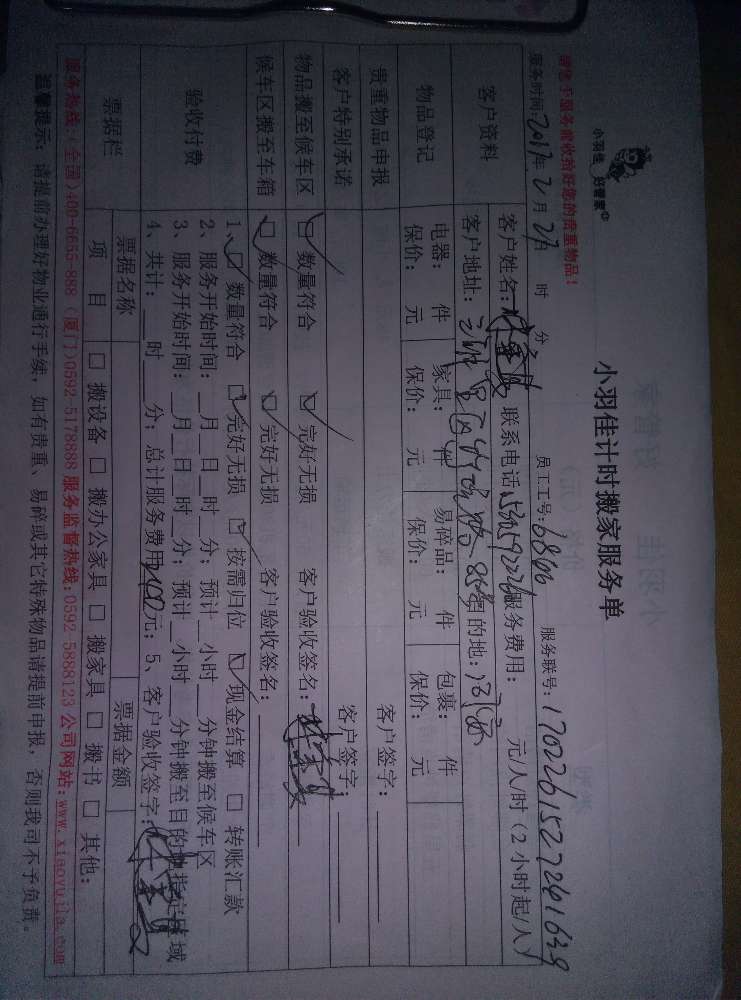 小羽佳 好管家®
小羽佳计时搬家服务单
请您于服务前收拾好您的贵重物品！
员工工号：6866 服务联号：1702261527261639
服务时间：2017年2月27日 时 分
客户资料
客户姓名： 联系电话： 服务费用： 元/人/时（2小时起/人）
客户地址： 目的地：
物品登记
电器： 件 家具： 件 易碎品： 件 包裹： 件
保价： 元 保价： 元 保价： 元 保价： 元
贵重物品申报 客户签字：
客户特别承诺 客户签字：
物品搬至候车区 ☑ 数量符合 ☑ 完好无损 客户验收签名：
候车区搬至车箱 ☑ 数量符合 ☑ 完好无损 客户验收签名：
验收付费
1、☑ 数量符合 ☑ 完好无损 ☑ 按需归位 ☑ 现金结算 □ 转账汇款
2、服务开始时间：__月__日__时__分；预计__小时__分钟搬至候车区
3、服务开始时间：__月__日__时__分；预计__小时__分钟搬至目的地指定区域
4、共计：__时__分；总计服务费用 元；5、客户验收签字：
票据栏
票据名称 票据金额
项 目 □ 搬设备 □ 搬办公家具 □ 搬家具 □ 搬书 □ 其他：
服务热线：（全国）400-6655-888（厦门）0592-5178888 服务监督热线：0592-5888123 公司网站：www.xiaoyujia.com
温馨提示：请提前办理好物业通行手续，如有贵重、易碎或其它特殊物品请提前申报，否则我司不予负责。